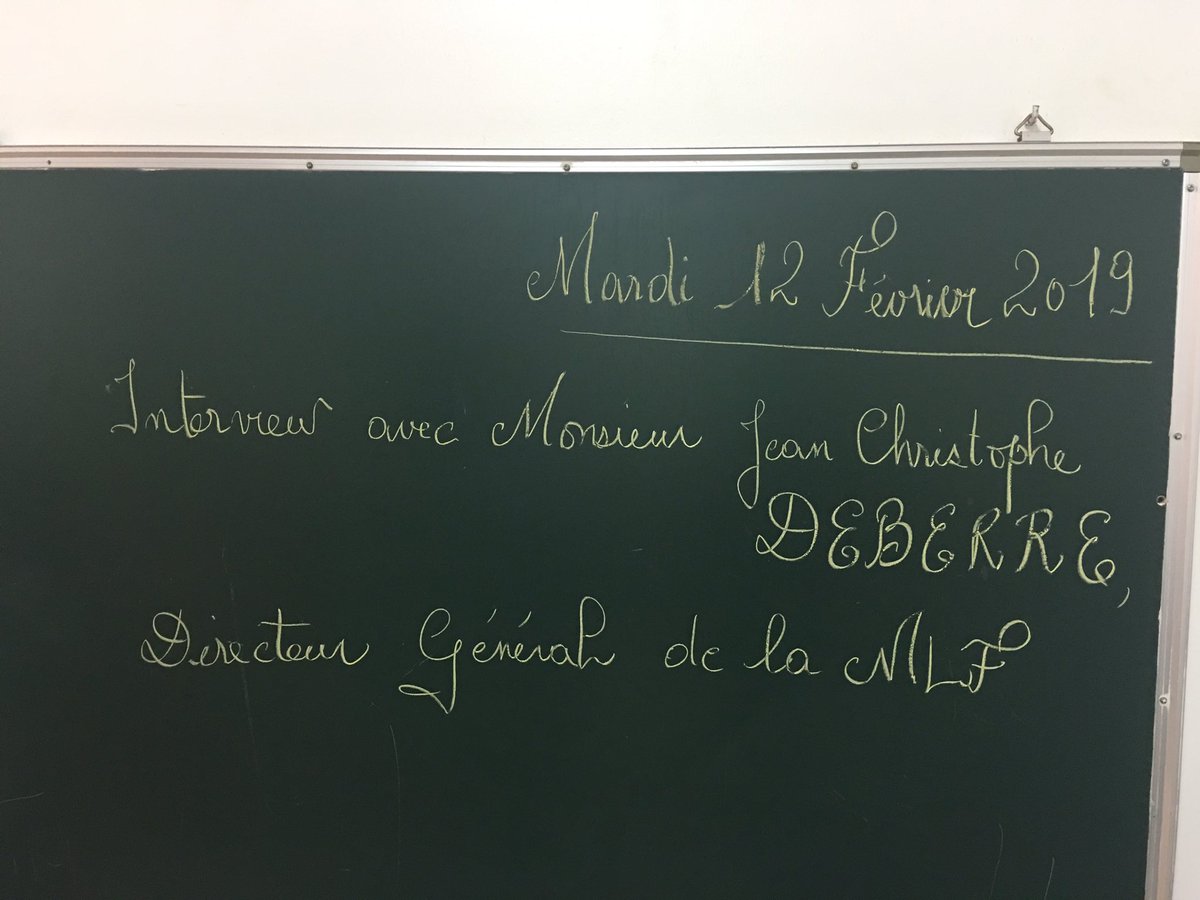 Mardi 12 Février 2019
Interview avec Monsieur Jean Christophe
DEBERRE,
Directeur Général de la MLF